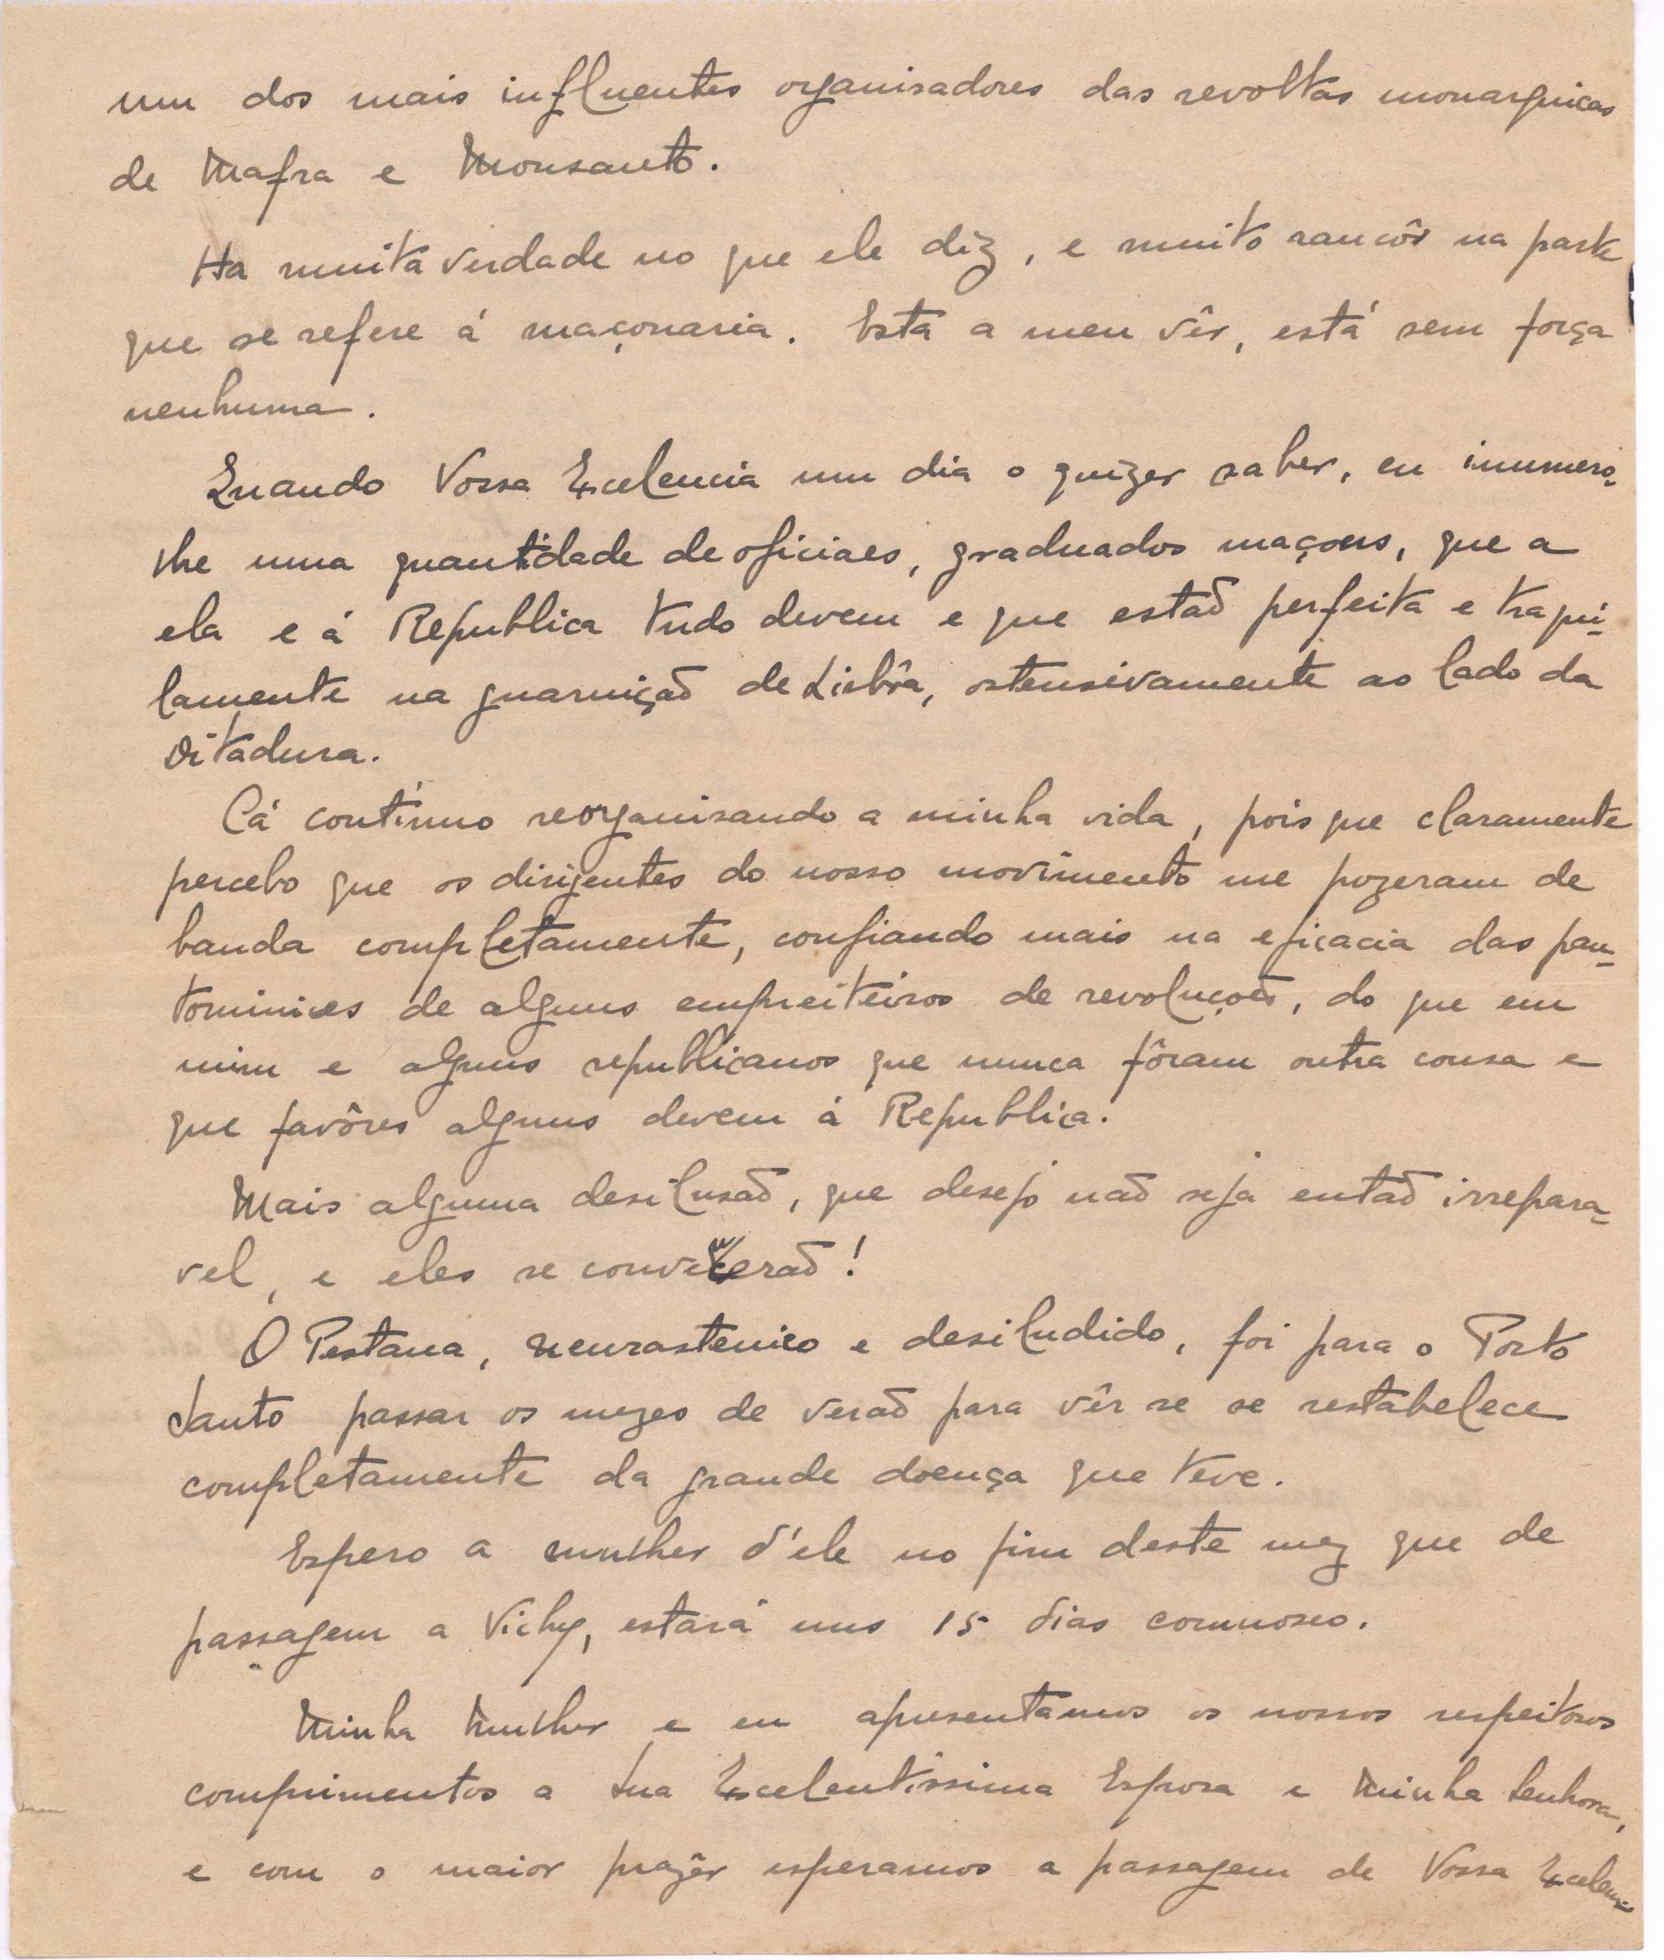 um dos mais influentes organisadores das revoltas monarquicas
de Mafra e Monsanto.
Ha muita verdade no que ele diz, e muito rancôr na parte
que se refere á maçonaria. Esta a meu vêr, está sem força
nenhuma.
Quando Vossa Excelencia um dia o quizer saber, eu inumero-
lhe uma quantidade de oficiaes, graduados maçons, que a
ela e á Republica tudo devem e que estaõ perfeita e traqui-
lamente na guarniçaõ de Lisbôa, ostensivamente ao lado da
Ditadura.
Cá contínuo reorganisando a minha vida, pois que claramente
percebo que os dirigentes do nosso movimento me pozeram de
banda completamente, confiando mais na eficacia das pan-
tominices de alguns empreiteiros de revoluções, do que em
mim e alguns republicanos que nunca fôram outra cousa e
que favôres alguns devem á Republica.
Mais alguma desilusaõ, que desejo naõ seja entaõ irrepara-
vel, e eles se convenceraõ!
O Pestana, neurastenico e desiludido, foi para o Porto
Santo passar os mezes de veraõ para vêr se se restabelece
completamente da grande doença que teve.
Espero a mulher d'ele no fim deste mez que de
passagem a Vichy, estará uns 15 dias comnosco.
Minha Mulher e eu apresentamos os nossos respeitosos
comprimentos a Sua Excelentissima Esposa e Minha Senhora,
e com o maior prazêr esperamos a passagem de Vossa Excelen-